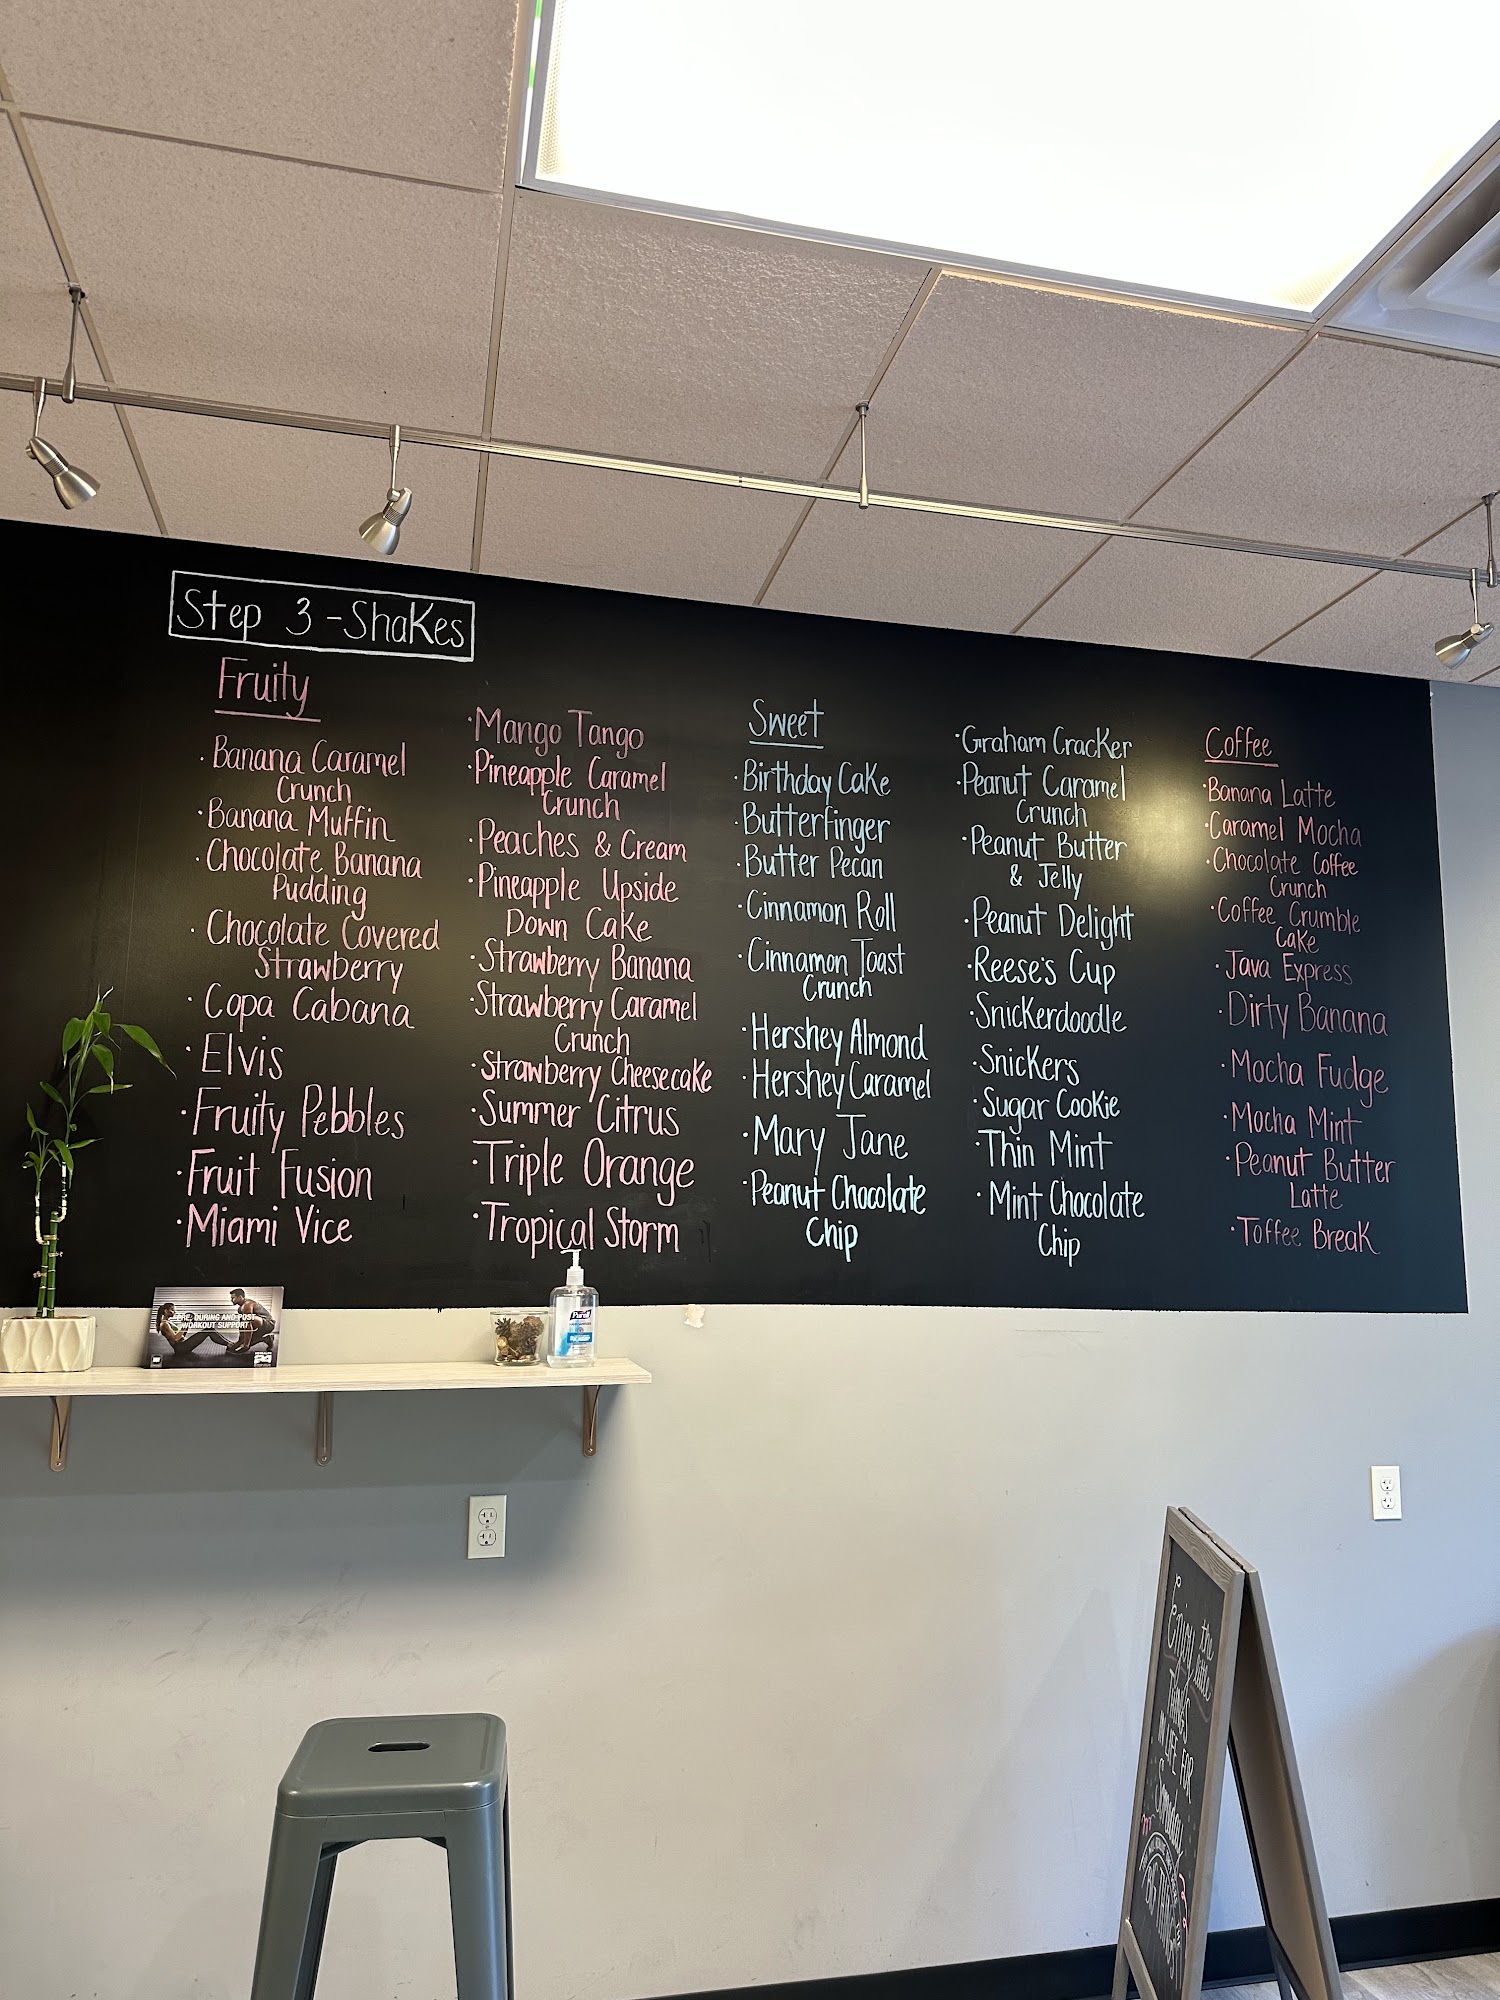 Step 3 - Shakes
Fruity
· Banana Caramel
Crunch
· Banana Muffin
· Chocolate Banana
Pudding
· Chocolate Covered
Strawberry
· Copa Cabana
· Elvis
· Fruity Pebbles
· Fruit Fusion
· Miami Vice
· Mango Tango
· Pineapple Caramel
Crunch
· Peaches & Cream
· Pineapple Upside
Down Cake
· Strawberry Banana
· Strawberry Caramel
Crunch
· Strawberry Cheesecake
· Summer Citrus
· Triple Orange
· Tropical Storm
Sweet
· Birthday Cake
· Butterfinger
· Butter Pecan
· Cinnamon Roll
· Cinnamon Toast
Crunch
· Hershey Almond
· Hershey Caramel
· Mary Jane
· Peanut Chocolate
Chip
· Graham Cracker
· Peanut Caramel
Crunch
· Peanut Butter
& Jelly
· Peanut Delight
· Reese's Cup
· Snickerdoodle
· Snickers
· Sugar Cookie
· Thin Mint
· Mint Chocolate
Chip
Coffee
· Banana Latte
· Caramel Mocha
· Chocolate Coffee
Crunch
· Coffee Crumble
Cake
· Java Express
· Dirty Banana
· Mocha Fudge
· Mocha Mint
· Peanut Butter
Latte
· Toffee Break
PRE, DURING AND POST
WORKOUT SUPPORT
Purell
Enjoy the little
THINGS
IN LIFE FOR
Someday
BIG THINGS